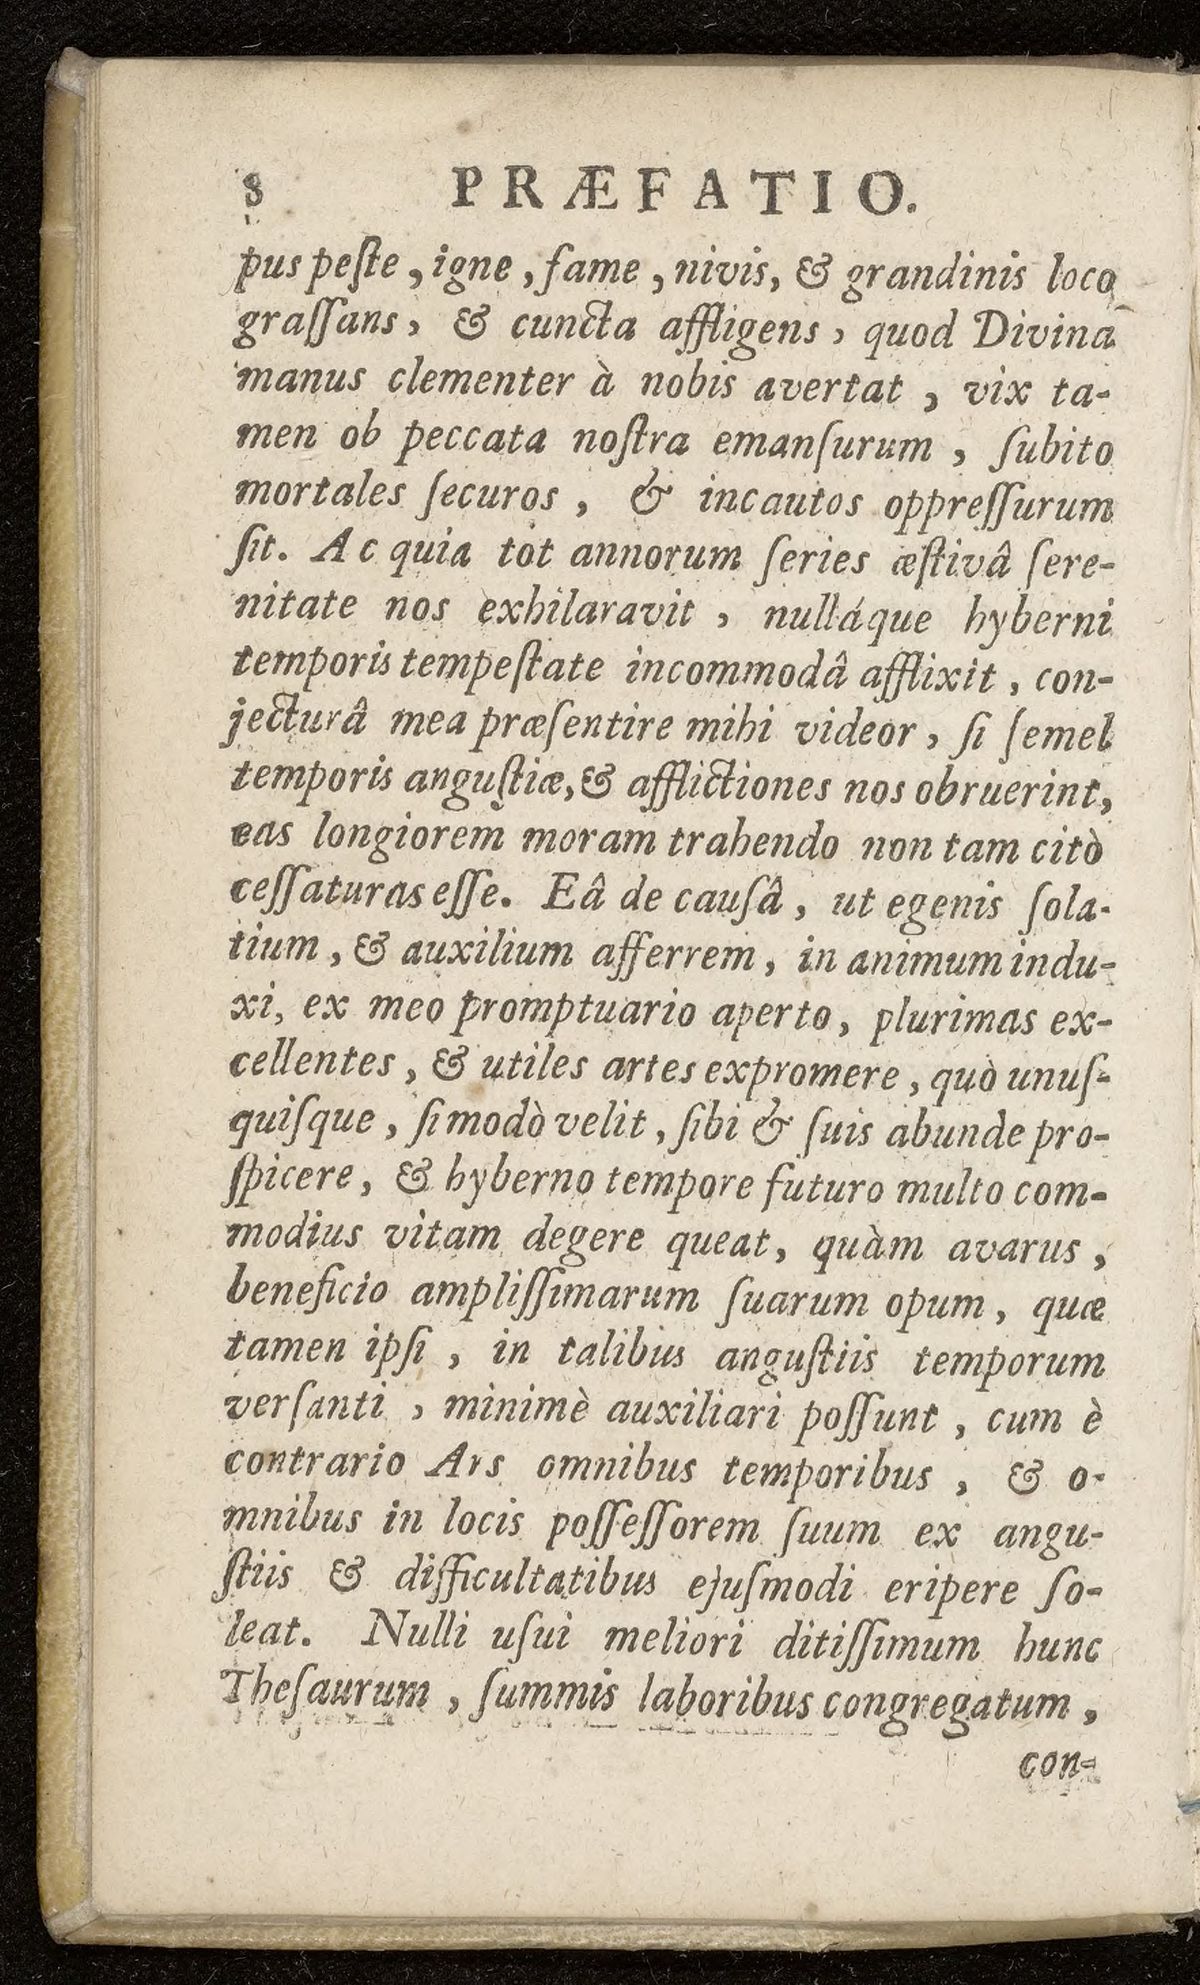 8 PRÆFATIO.
pus peſte, igne, fame, nivis, & grandinis loco
graſſans, & cuncta affligens, quod Divina
manus clementer à nobis avertat, vix ta-
men ob peccata noſtra emanſurum, ſubito
mortales ſecuros, & incautos oppreſſurum
ſit. Ac quia tot annorum ſeries æſtivâ ſere-
nitate nos exhilaravit, nulláque hyberni
temporis tempeſtate incommodâ afflixit, con-
jecturâ mea præſentire mihi videor, ſi ſemel
temporis anguſtiæ, & afflictiones nos obruerint,
eas longiorem moram trahendo non tam citò
ceſſaturas eſſe. Eâ de cauſâ, ut egenis ſola-
tium, & auxilium afferrem, in animum indu-
xi, ex meo promptuario aperto, plurimas ex-
cellentes, & utiles artes expromere, quò unuſ-
quiſque, ſi modò velit, ſibi & ſuis abunde pro-
ſpicere, & hyberno tempore futuro multo com-
modius vitam degere queat, quàm avarus,
beneficio ampliſſimarum ſuarum opum, quæ
tamen ipſi, in talibus anguſtiis temporum
verſanti, minimè auxiliari poſſunt, cum è
contrario Ars omnibus temporibus, & o-
mnibus in locis poſſeſſorem ſuum ex angu-
ſtiis & difficultatibus ejuſmodi eripere ſo-
leat. Nulli uſui meliori ditiſſimum hunc
Theſaurum, ſummis laboribus congregatum,
con-